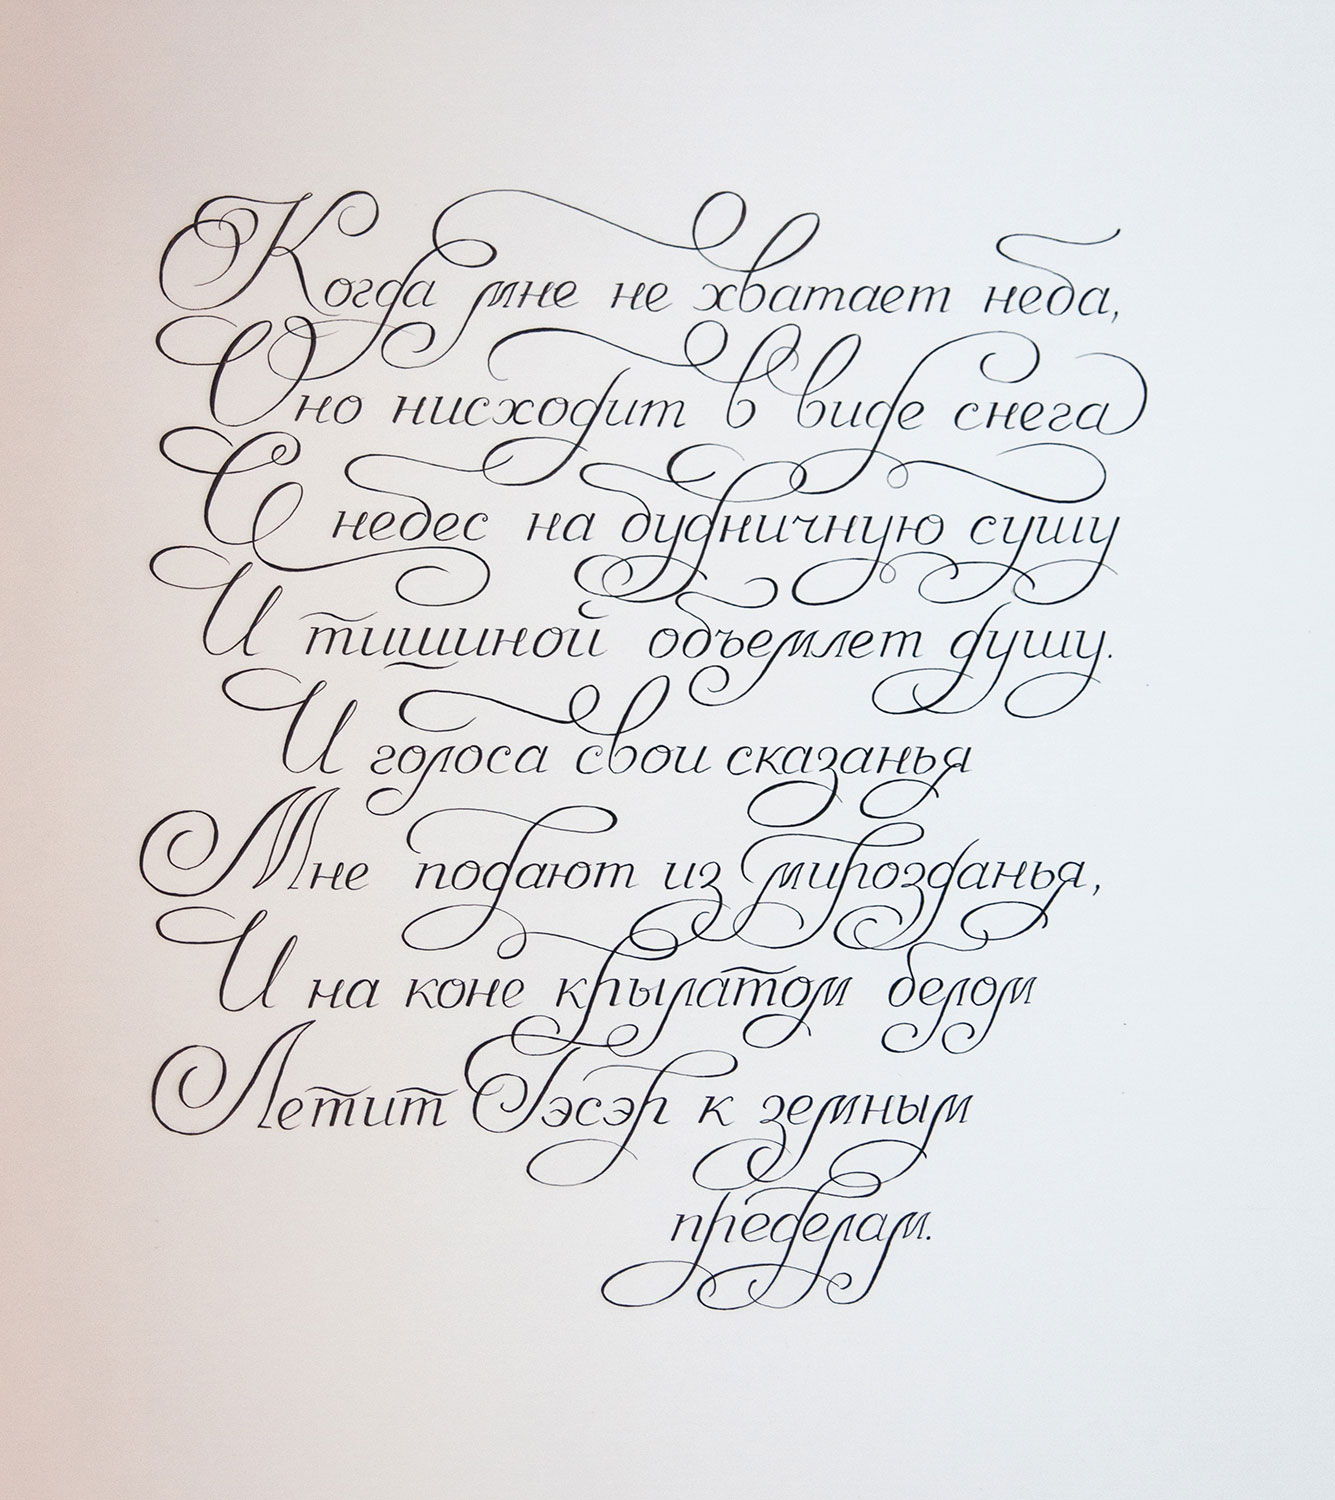 Когда мне не хватает неба,
Оно нисходит в виде снега
С небес на будничную сушу
И тишиной объемлет душу.
И голоса свои сказанья
Мне подают из мирозданья,
И на коне крылатом белом
Летит Гэсэр к земным
пределам.